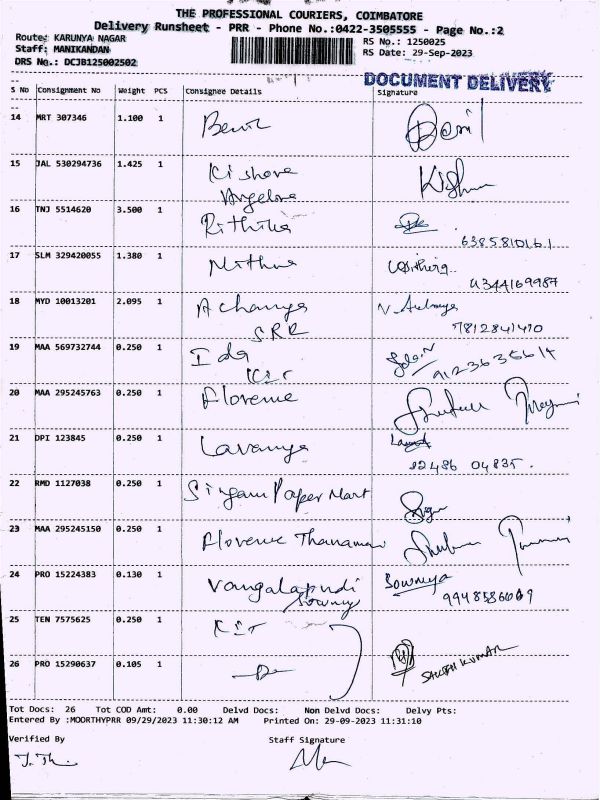 THE PROFESSIONAL COURIERS, COIMBATORE
Delivery Runsheet - PRR - Phone No.:0422-3505555 - Page No.:2
Route: KARUNYA NAGAR
RS No.: 1250025
Staff: MANIKANDAN
RS Date: 29-Sep-2023
DRS No.: DCJB125002502
DOCUMENT DELIVERY
S No Consignment No Weight PCS Consignee Details Signature
14 MRT 307346 1.100 1
15 JAL 530294736 1.425 1 Kishore
Angeline
16 TNJ 5514620 3.500 1 Rithika
6385810161
17 SLM 329420055 1.380 1 Mithun
18 MYD 10013201 2.095 1 Achanya
SRR
7812841410
19 MAA 569732744 0.250 1 Ida
9123635614
20 MAA 295245763 0.250 1 Florence
21 DPI 123845 0.250 1 Lavanya
22 RMD 1127038 0.250 1 Paper Mart
23 MAA 295245150 0.250 1 Florence Thanamani
24 PRO 15224383 0.130 1 Vangalapudi Sowmya
Sowmya
25 TEN 7575625 0.250 1
26 PRO 15290637 0.105 1
Tot Docs: 26 Tot COD Amt: 0.00 Delvd Docs: Non Delvd Docs: Delvy Pts:
Entered By :MOORTHYPRR 09/29/2023 11:30:12 AM Printed On: 29-09-2023 11:31:10
Verified By Staff Signature